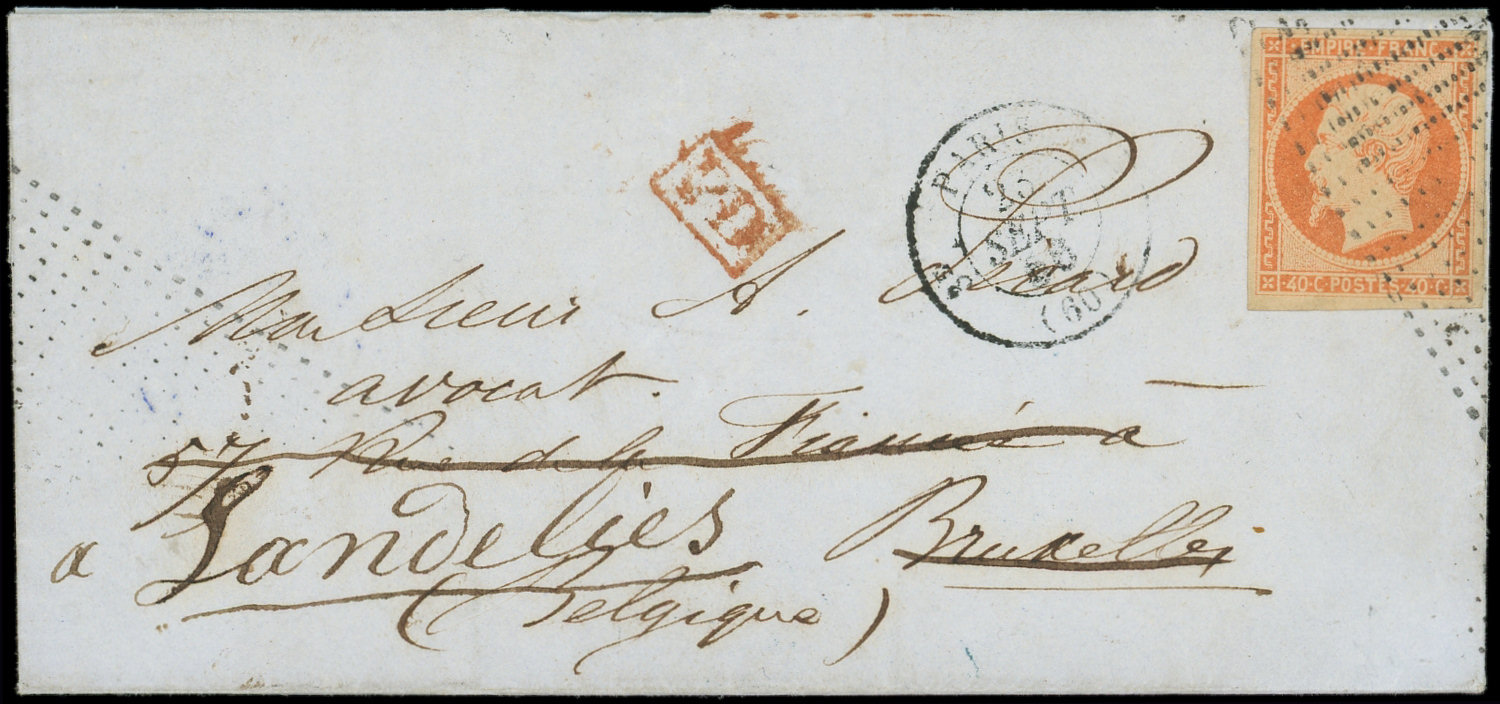 EMPIRE FRANC
40·C·POSTES·40·C
PD
PARIS
SEPT
(60)
Monsieur A.
avocat.
57 Rue de la a
a Landelies Bruxelles
(Belgique)